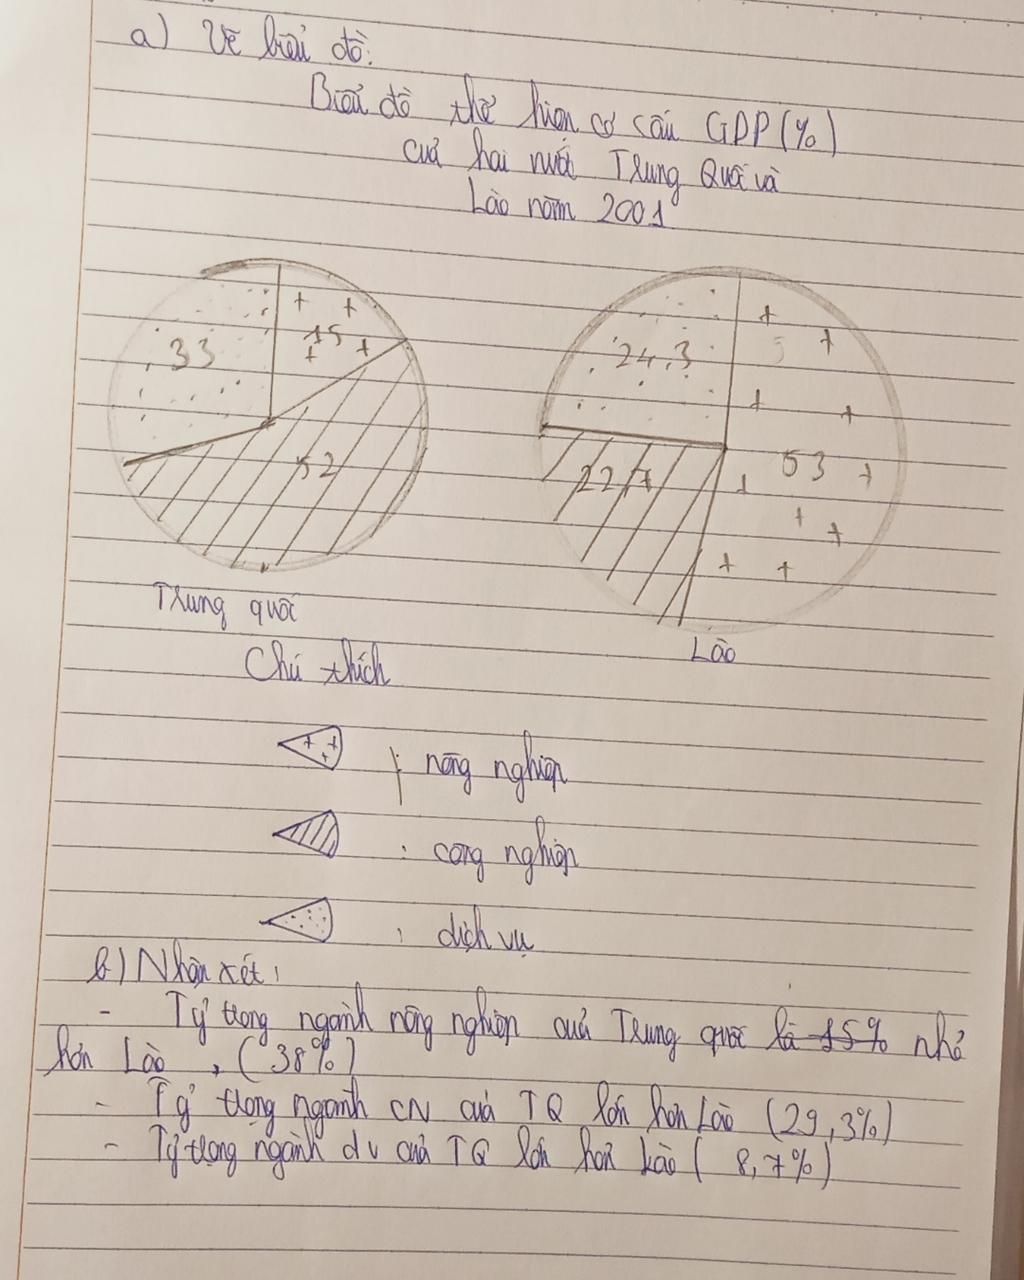 a) Vẽ biểu đồ:
Biểu đồ thể hiện cơ cấu GDP (%)
của hai nước Trung Quốc và
Lào năm 2001
33
15
52
24,3
5
22,7
53
Trung quốc
Lào
Chú thích
: nông nghiệp
: công nghiệp
: dịch vụ
b) Nhận xét:
- Tỷ trọng ngành nông nghiệp của Trung quốc là 15% nhỏ
hơn Lào, (38%)
- Tỷ trọng ngành CN của TQ lớn hơn Lào (29,3%)
- Tỷ trọng ngành dv của TQ lớn hơn Lào ( 8,7%)